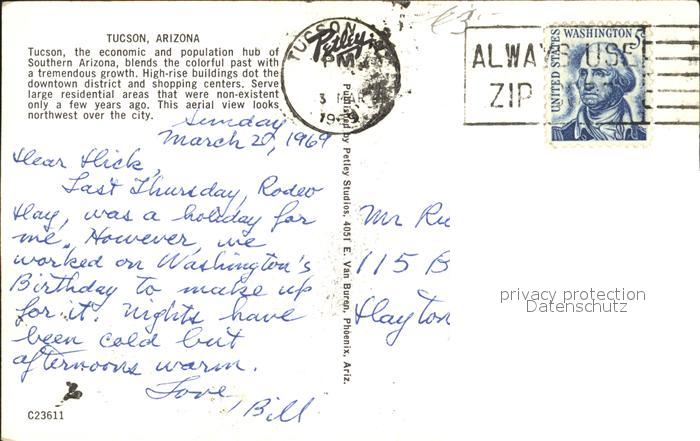 TUCSON, ARIZONA
Tucson, the economic and population hub of
Southern Arizona, blends the colorful past with
a tremendous growth. High-rise buildings dot the
downtown district and shopping centers. Serve
large residential areas that were non-existent
only a few years ago. This aerial view looks
northwest over the city.
Sunday
March 2, 1969
Dear Dick,
Last Thursday, Rodeo
Day, was a holiday for
me. However, we
worked on Washington's
Birthday to make up
for it. Nights have
been cold but
afternoons warm.
Love,
Bill
C23611
Petley
Published by Petley Studios, 4051 E. Van Buren, Phoenix, Ariz.
TUCSON
PM
3 MAR
1969
ALWAYS USE
ZIP
UNITED STATES
WASHINGTON 5c
Mr Ru
115 B
Dayton
privacy protection
Datenschutz